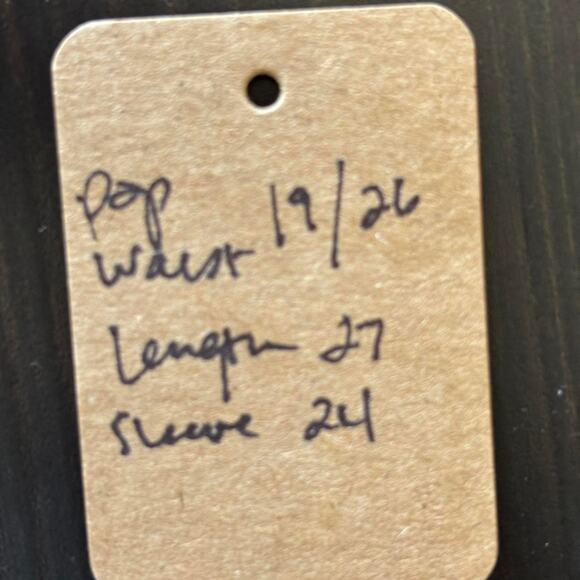 pop
waist 19/26
Length 27
Sleeve 24